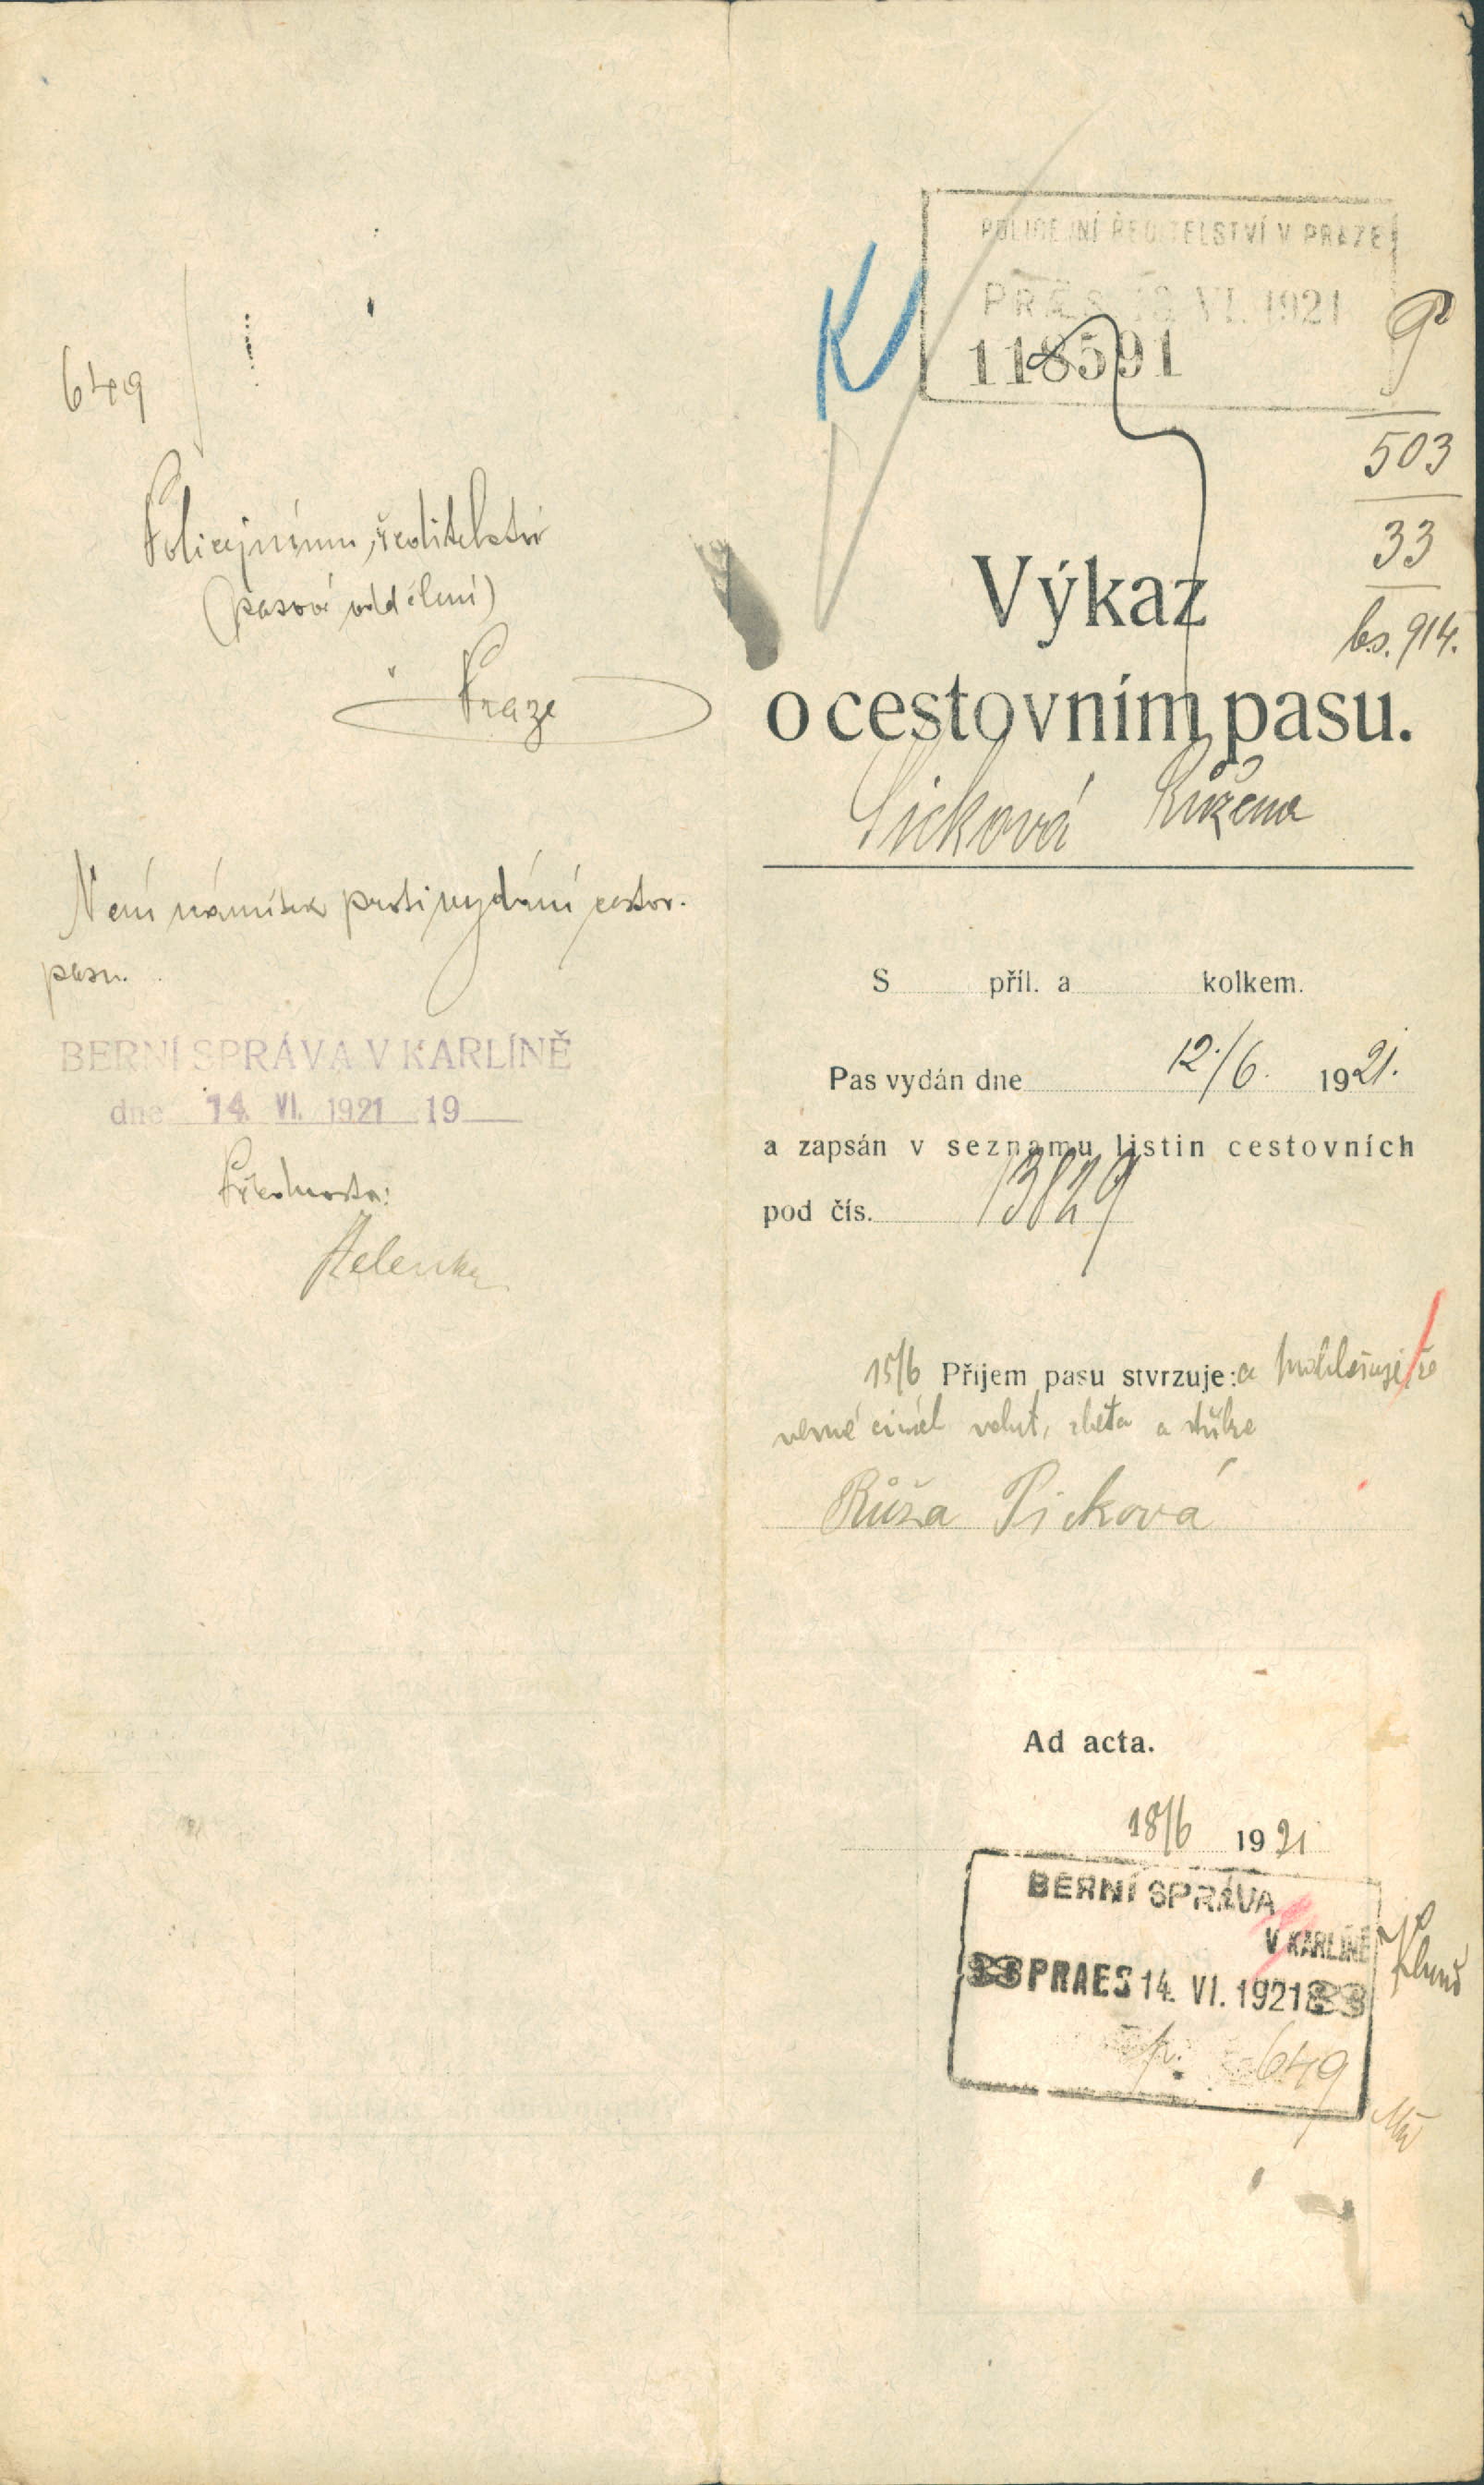 649
Policejnímu ředitelství
(pasové oddělení)
v Praze
Není námitek proti vydání cestov.
pasu.
BERNÍ SPRÁVA V KARLÍNĚ
dne 14. VI. 1921 19
Přednosta:
K
POLICEJNÍ ŘEDITELSTVÍ V PRAZE
PRAES. VI. 1921
118591
503
33
b.s. 914.
Výkaz
o cestovním pasu.
Picková Růžena
S příl. a kolkem.
Pas vydán dne 12./6. 1921.
a zapsán v seznamu listin cestovních
pod čís. 13829
15/6 Příjem pasu stvrzuje: a prohlašuje, že
valut, zlata a
Růža Picková
Ad acta.
18/6 1921
BERNÍ SPRÁVA
V KARLÍNĚ
PRAES 14. VI. 1921
649